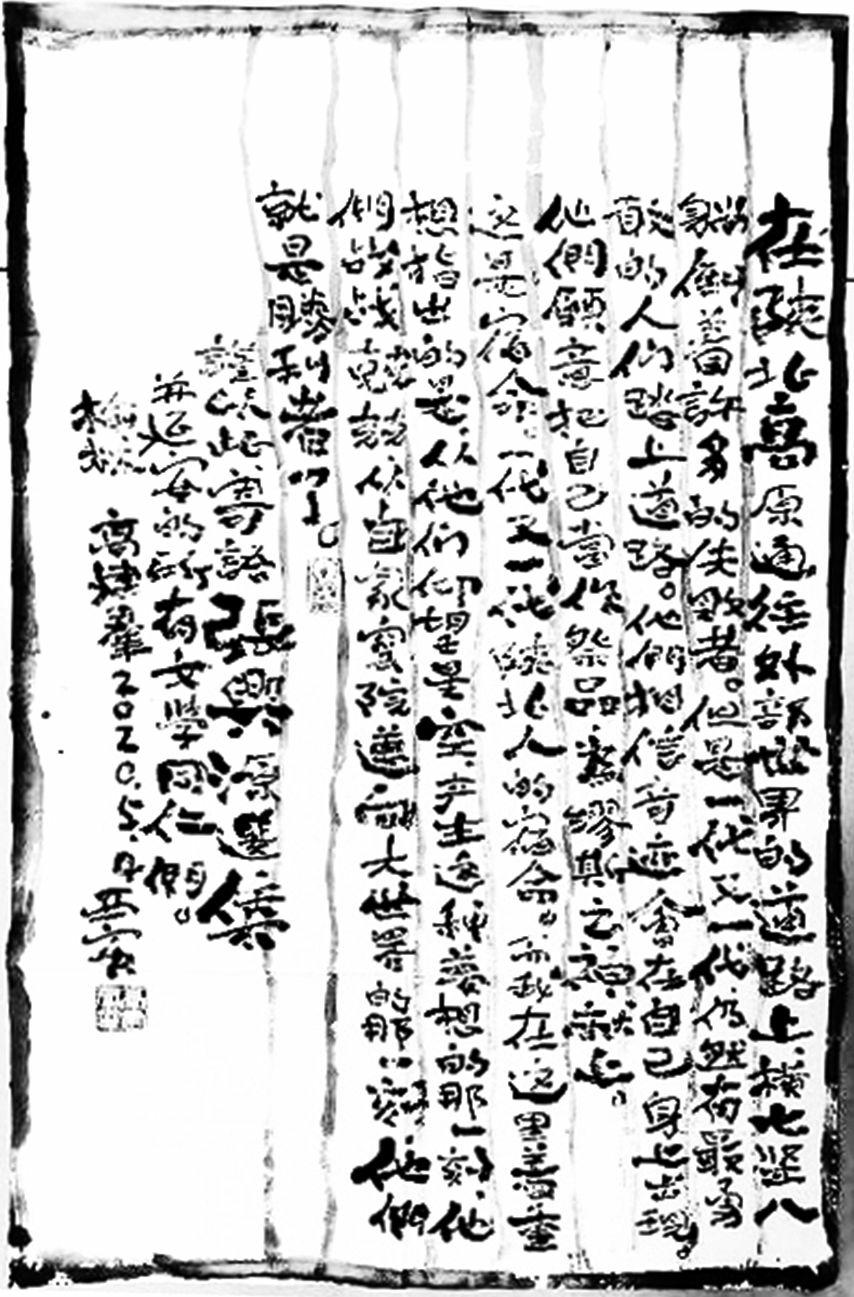 在陕北高原通往外部世界的道路上，横七竖八
躺倒着許多的失敗者。但是一代又一代，仍然有最勇
敢的人们踏上道路。他們相信奇迹會在自己身上出现。
他們願意把自己當作祭品，為繆斯之神献上。
这是宿命。一代又一代陕北人的宿命。而我在这里着重
想指出的是，从他们仰望星空，产生这种夢想的那一刻，他
們战战兢兢，从自家窑院邁向大世界的那一刻，他們
就是勝利者了。
謹以此寄語張興源選集
并延安的所有文學同仁們。
高建群2020.5. 西安